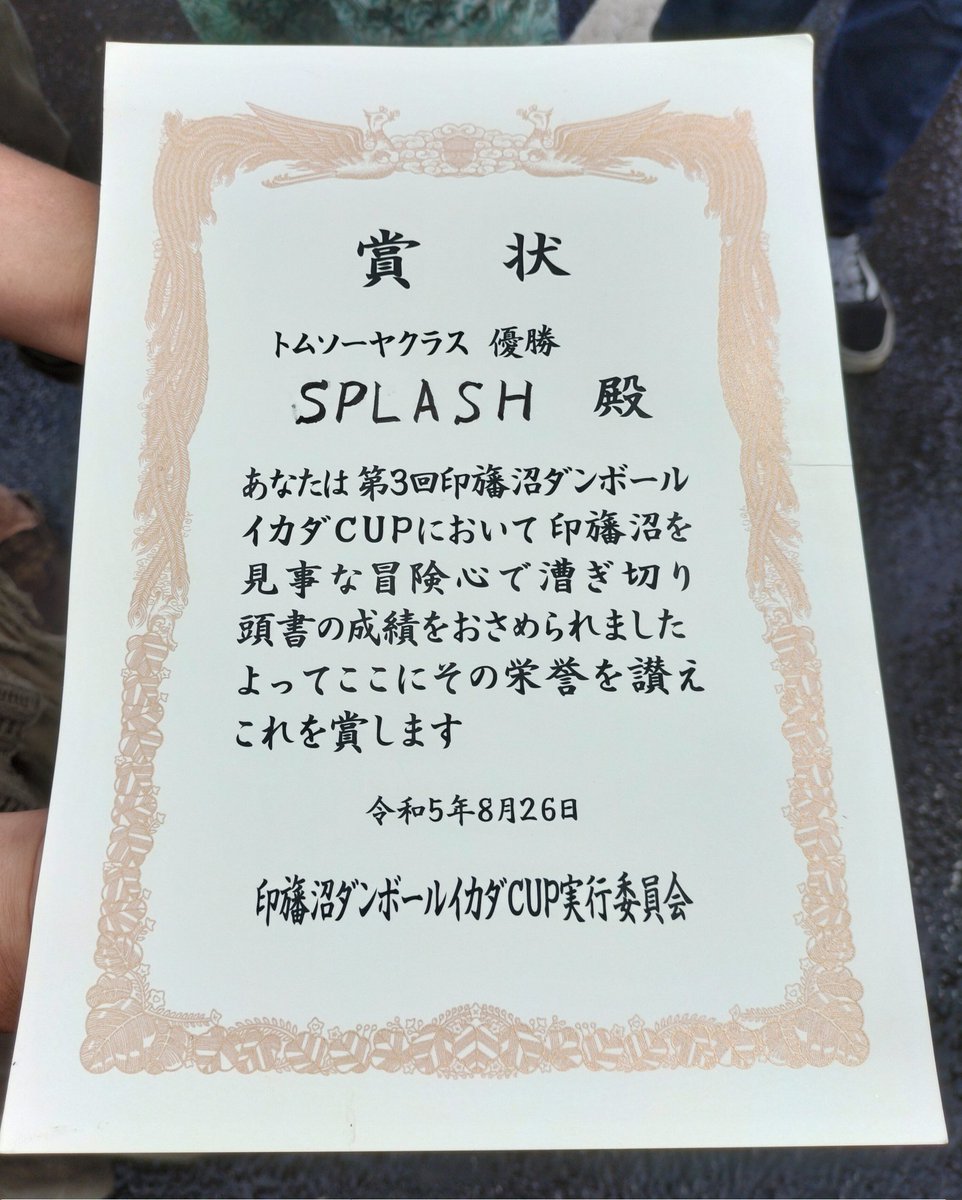 賞状
トムソーヤクラス 優勝
SPLASH 殿
あなたは 第3回印旛沼ダンボール
イカダCUPにおいて 印旛沼を
見事な冒険心で漕ぎ切り
頭書の成績をおさめられました
よってここにその栄誉を讃え
これを賞します
令和5年8月26日
印旛沼ダンボールイカダCUP実行委員会